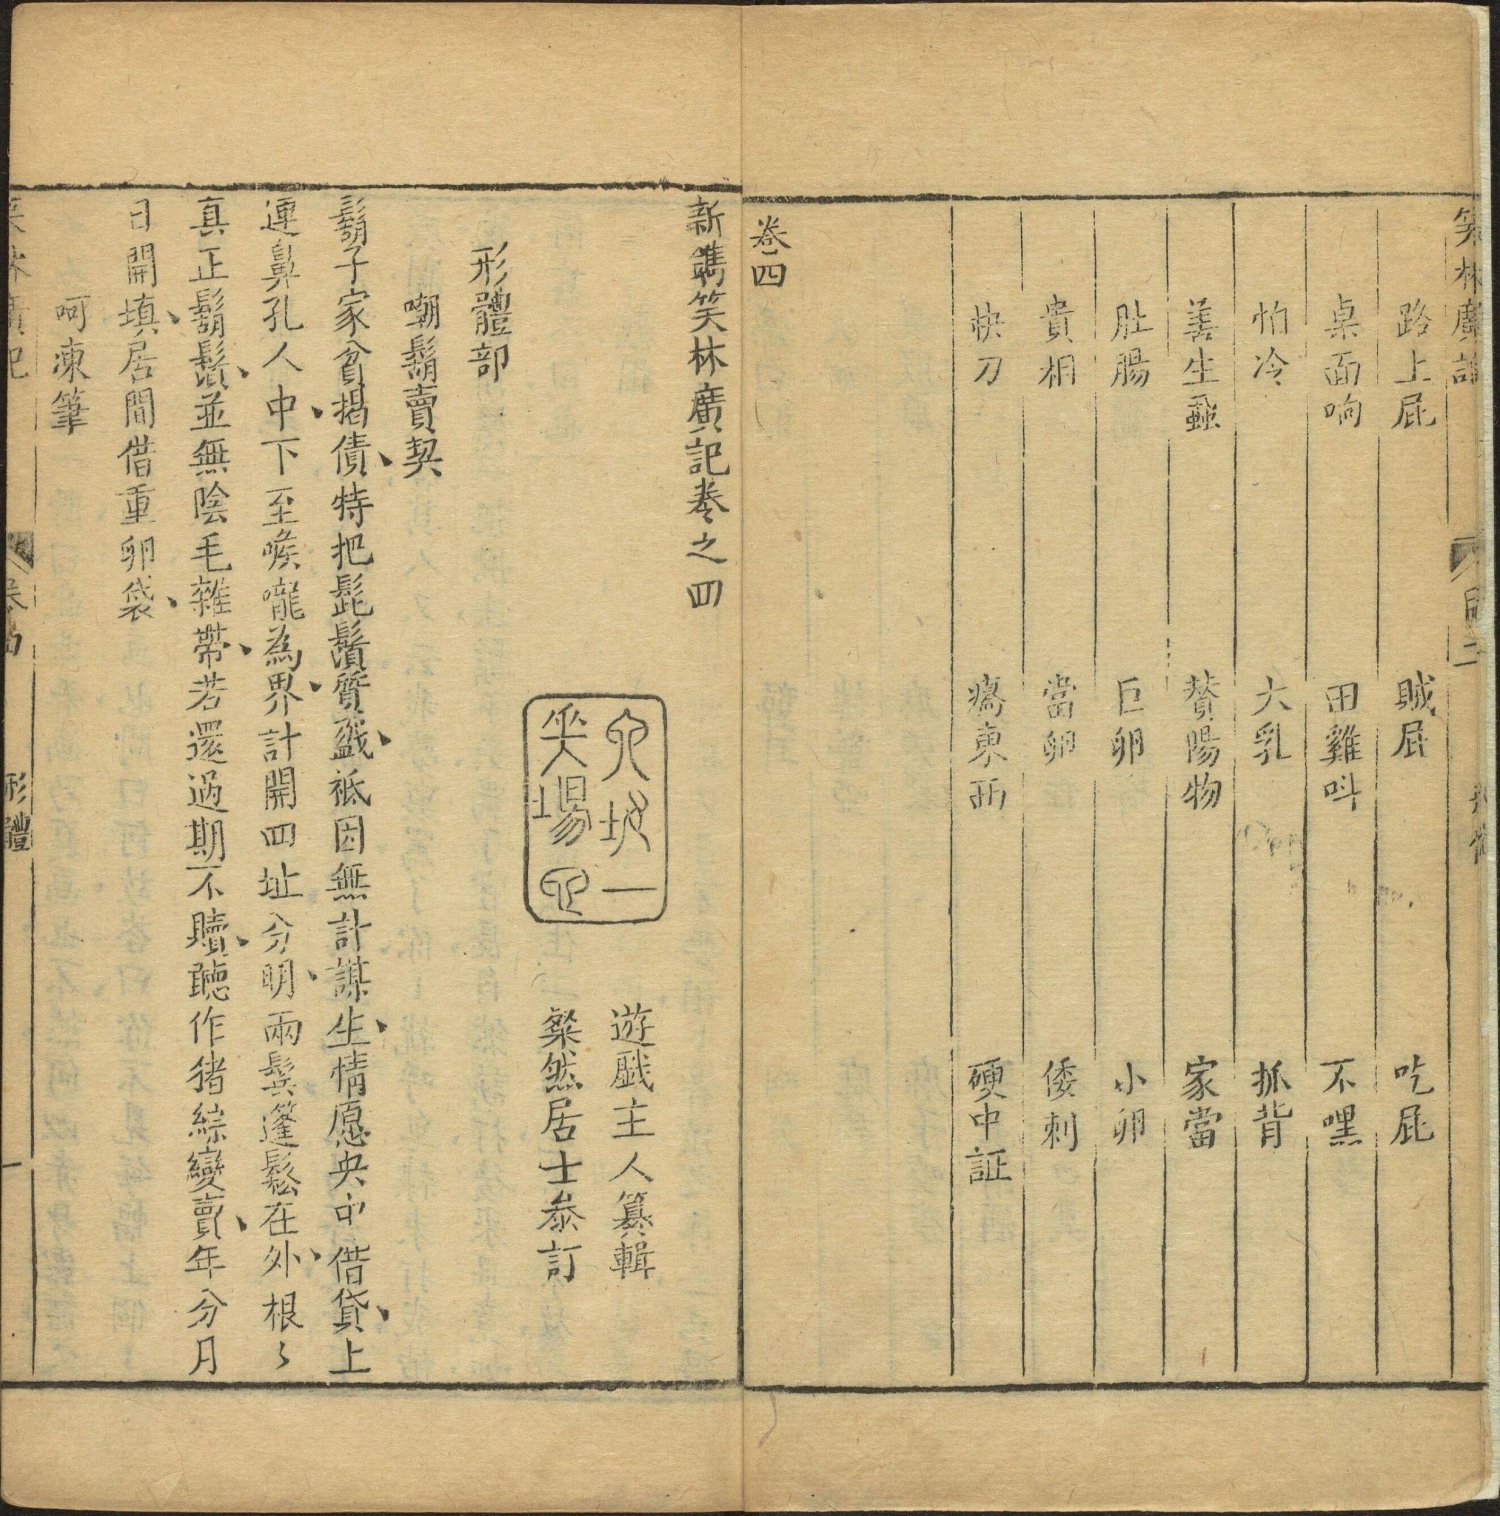 笑林廣記
路上屁 賊屁 吃屁
桌面响 田雞叫 不嘿
怕冷 大乳 抓背
善生蝨 贊陽物 家當
肚腸 巨卵 小卵
貴相 當卵 倭刺
快刀 癢東西 硬中証
卷四
新鐫笑林廣記卷之四
遊戯主人纂輯
粲然居士叅訂
形體部
嘲鬍賣契
鬍子家貧揭債特把髭鬚質盝祗因無計謀生情愿央中借貸上
連鼻孔人中下至喉嚨為界計開四址分明兩鬂蓬鬆在外根〻
真正鬍鬚並無陰毛雜帶若還過期不贖聽作猪綜變賣年分月
日開填居間借重卵袋
呵凍筆
笑林廣記 卷四 形體 一